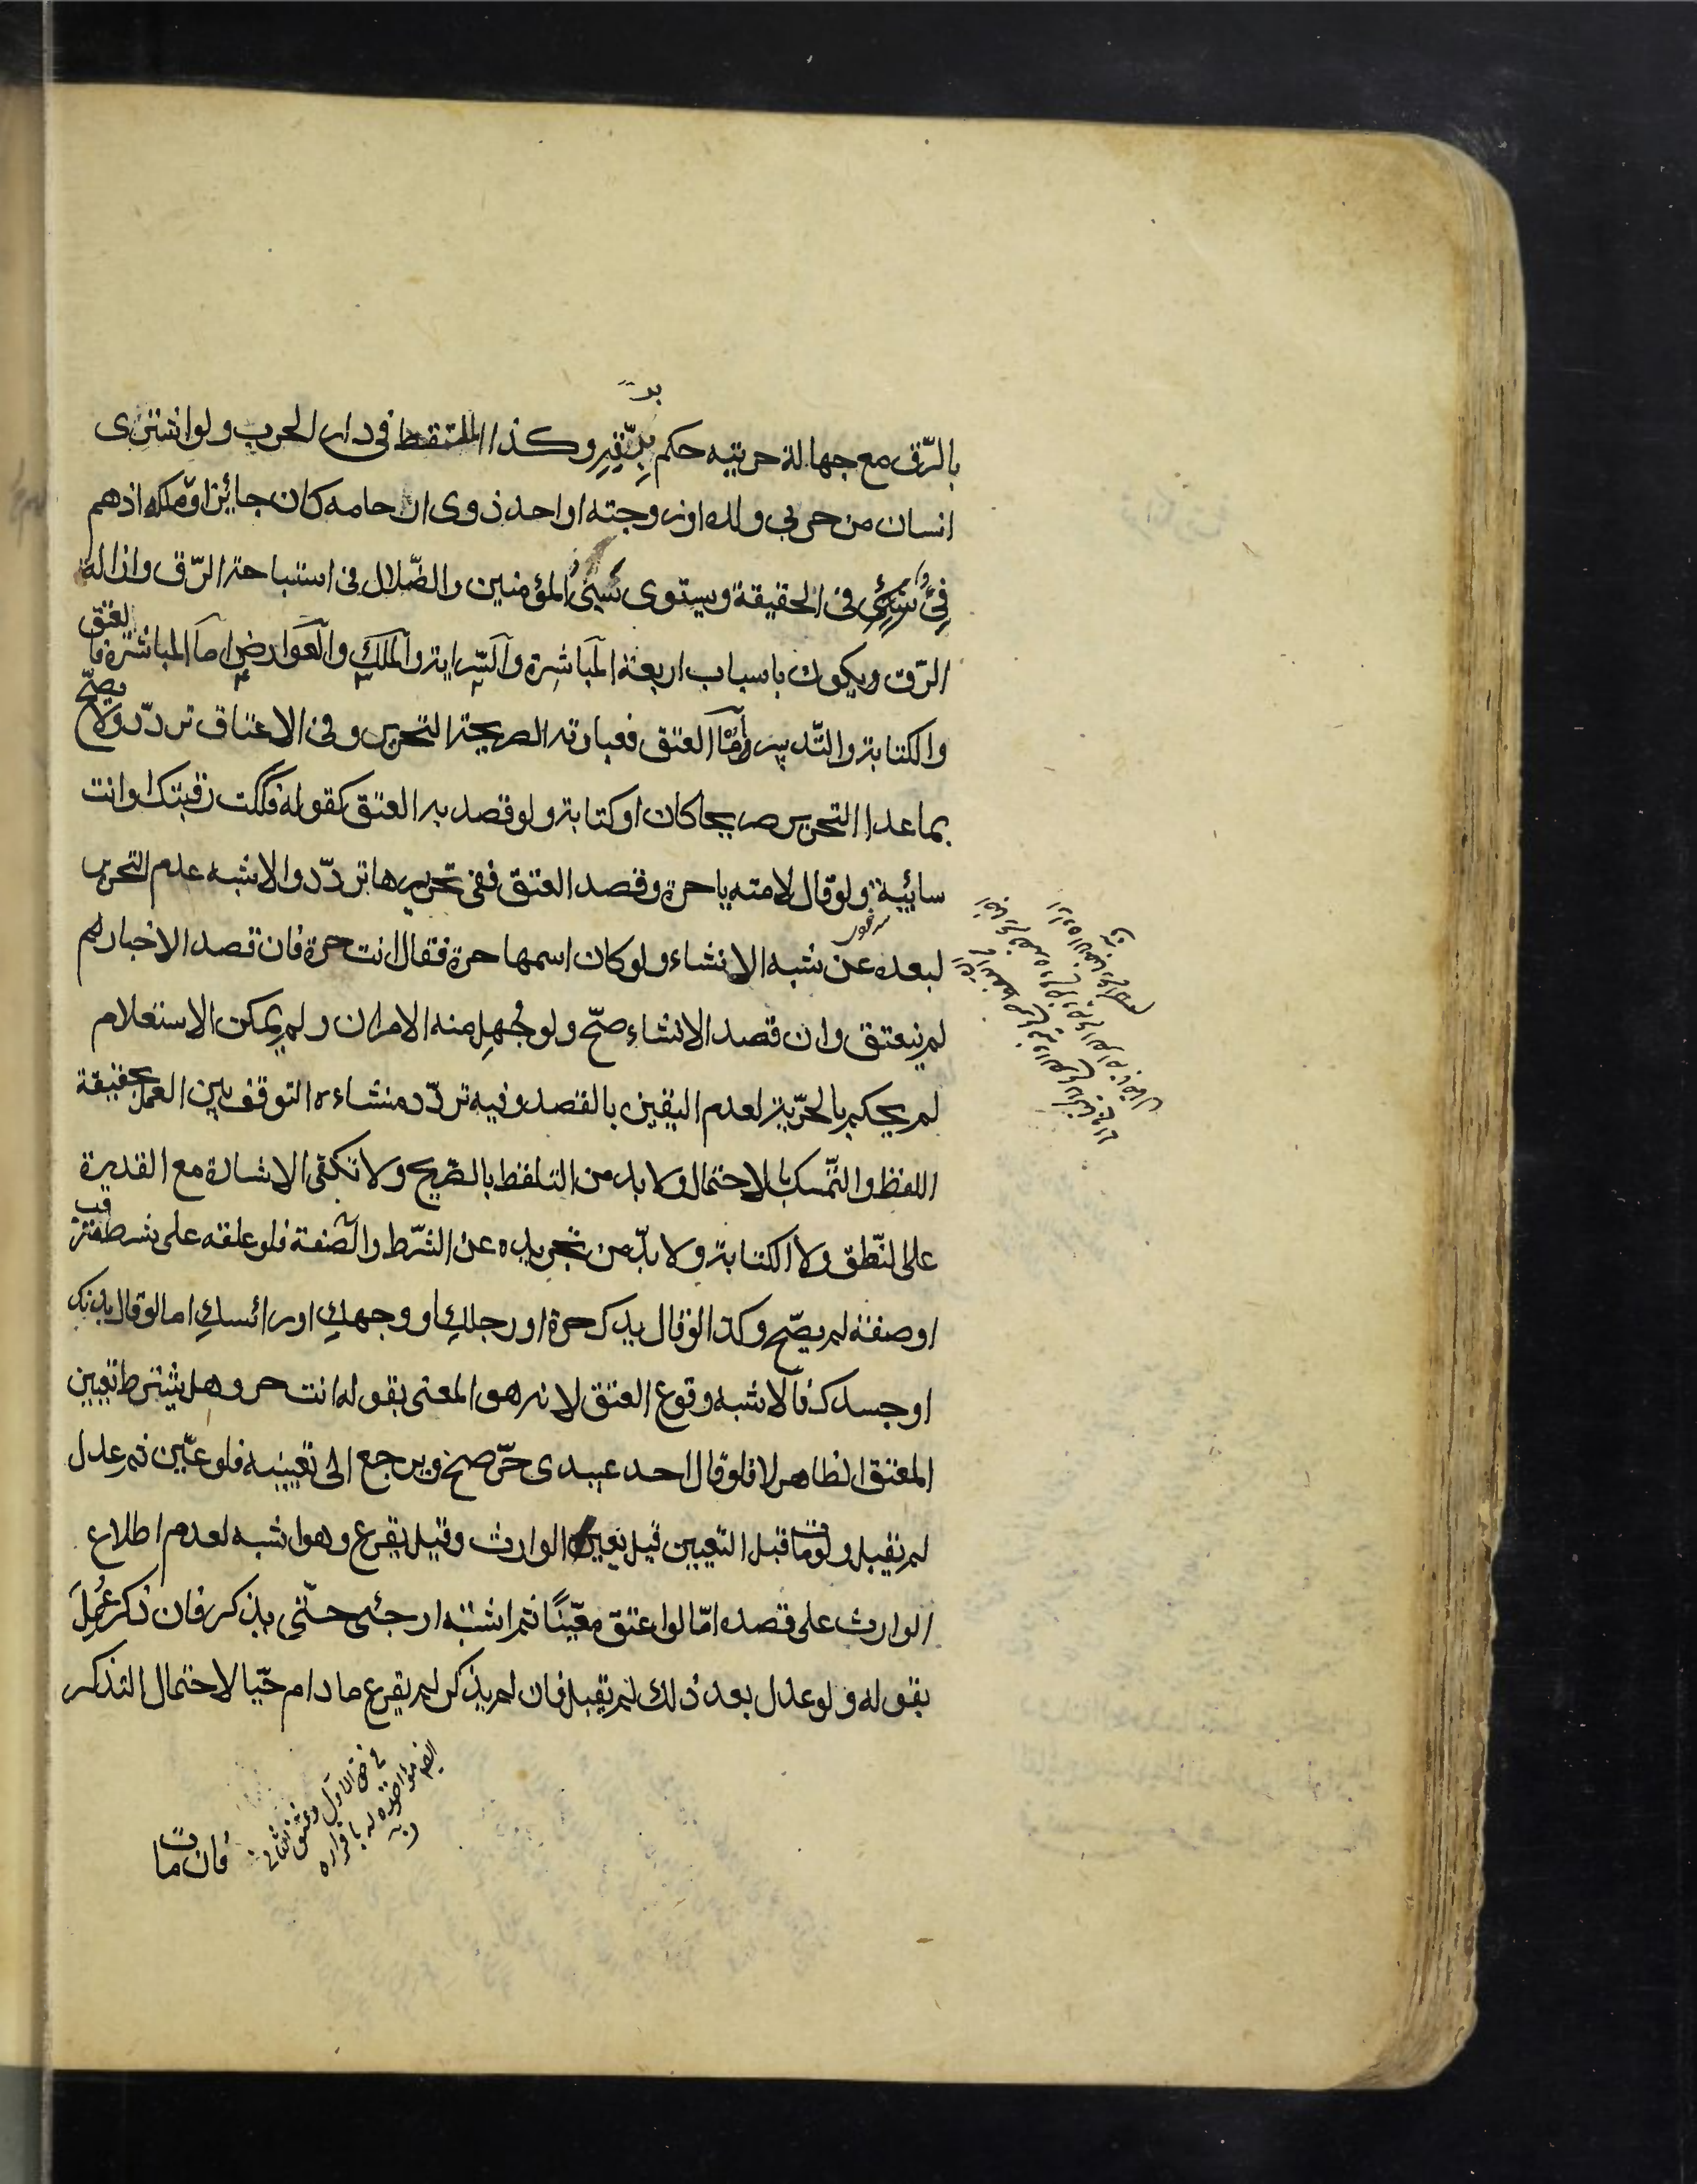 بالرّق مع جهالة حريته حكم برقّه وكذا الملتقط فى دار الحرب ولو اشترى
انسان من حربي ولده او زوجته او احد ذوى ارحامه كان جائزا وملكه اذهم
فئ فى الحقيقة ويستوى سبى المؤمنين والضّلال فى استباحة الرّق وازالة
الرّق ويكون باسباب اربعة المباشرة والسّراية والملك والعوارض اما المباشرة فالعتق
والكتابة والتّدبير وامّا العتق فعبارته الصريحة التحرير وفى الاعتاق تردّد ولا يصحّ
بما عدا التحرير صريحا كان او كناية ولو قصد به العتق كقوله فككت رقبتك او انت
سائبة ولو قال لامته يا حرة وقصد العتق ففى تحريرها تردّد والاشبه عدم التحرير
لبعده عن شبه الانشاء ولو كان اسمها حرة فقال انت حرة فان قصد الاخبار لم
لم ينعتق وان قصد الانشاء صحّ ولو جُهِل منه الامران ولم يمكن الاستعلام
لم يحكم بالحرّية لعدم اليقين بالقصد وفيه تردّد منشاءه التوقف بين العمل بحقيقة
اللفظ والتّمسك بالاحتمال ولا بد من التلفظ بالصّريح ولا تكفى الاشارة مع القدرة
على النّطق ولا الكتابة ولا بدّ من تجريده عن الشّرط والصّفة فلو علقه على شرط مترقب
او صفة لم يصّح وكذا لو قال يدك حرة او رجلكِ او وجهكِ او رائسكِ اما لو قال بدنك
او جسدك فالاشبه وقوع العتق لانه هو المعنى بقوله انت حر وهل يشترط تعيين
المعتق الظاهر لا فلو قال احد عبيدى حرّ صح ويرجع الى تعيينه فلو عيّن ثم عدل
لم يقبل ولو مات قبل التّعيين قيل يعين الوارث وقيل يقرع وهو اشبه لعدم اطلاع
الوارث على قصده امّا لو اعتق معيّنًا ثم اشتبه ارجئ حتّى يذكر فان ذكر عُمِلَ
بقوله ولو عدل بعد ذلك لم يقبل فان لم يذكر لم يقرع ما دام حيّا لاحتمال التذكر
فان مات